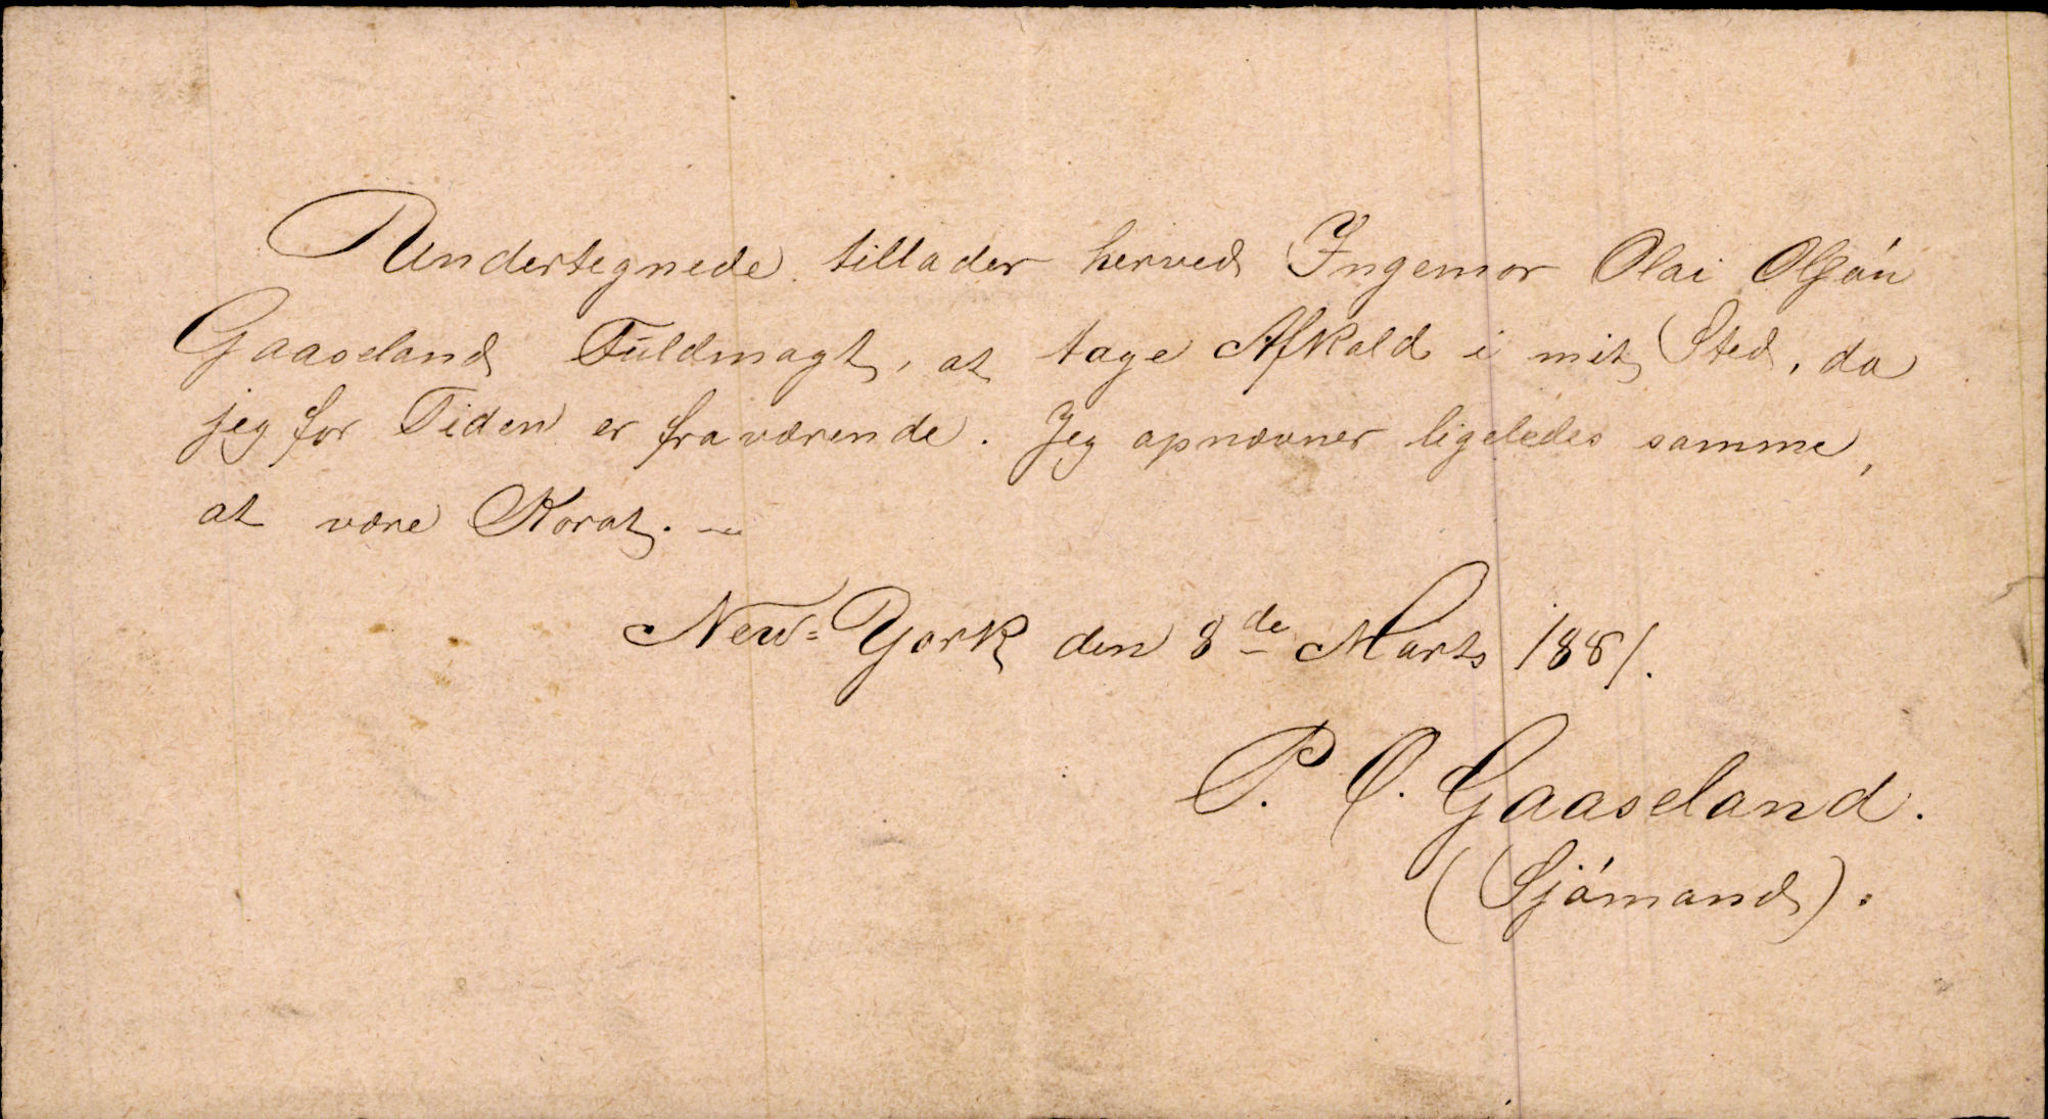 Undertegnede tillader herved Ingemor Olai Olsön
Gaaseland Fuldmagt, at tage Afkald i mit Sted, da
jeg for Tiden er fraværende. Jeg opnævner ligeledes samme,
at være Korat. —
New-York den 8de Marts 1881.
P. O. Gaaseland.
(Sjómand).